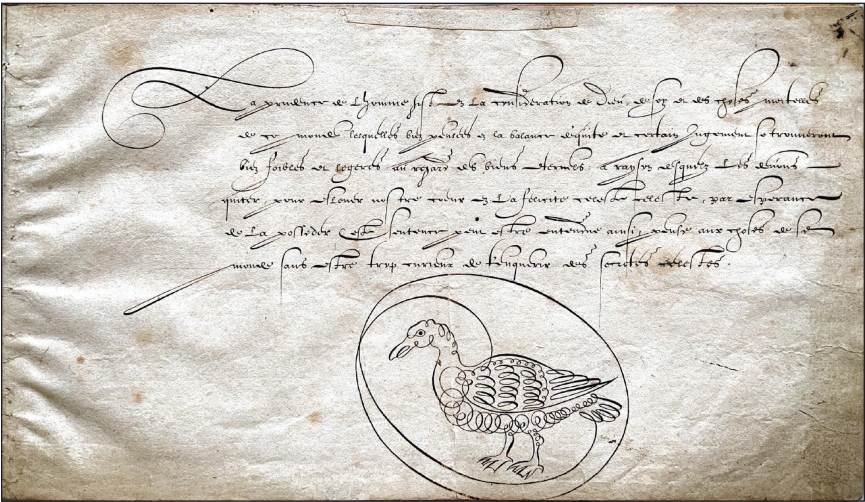 La prudence de Lhomme gist en La consideration de Dieu, de soy et des choses mortelles
de ce monde lesquelles bien pensees en la balance dequite et certain Jugement se trouueront
bien foibles et legeres au regard des biens eternels, a rayson desquelz Les deuons
quiter, pour eleuer nostre coeur en La felicite celeste celeste, par esperance
de La posseder Cest sentence peut estre entendue ainsi, pense aux choses de se
monde sans estre trop curieux de tenquerir des secretes celestes.